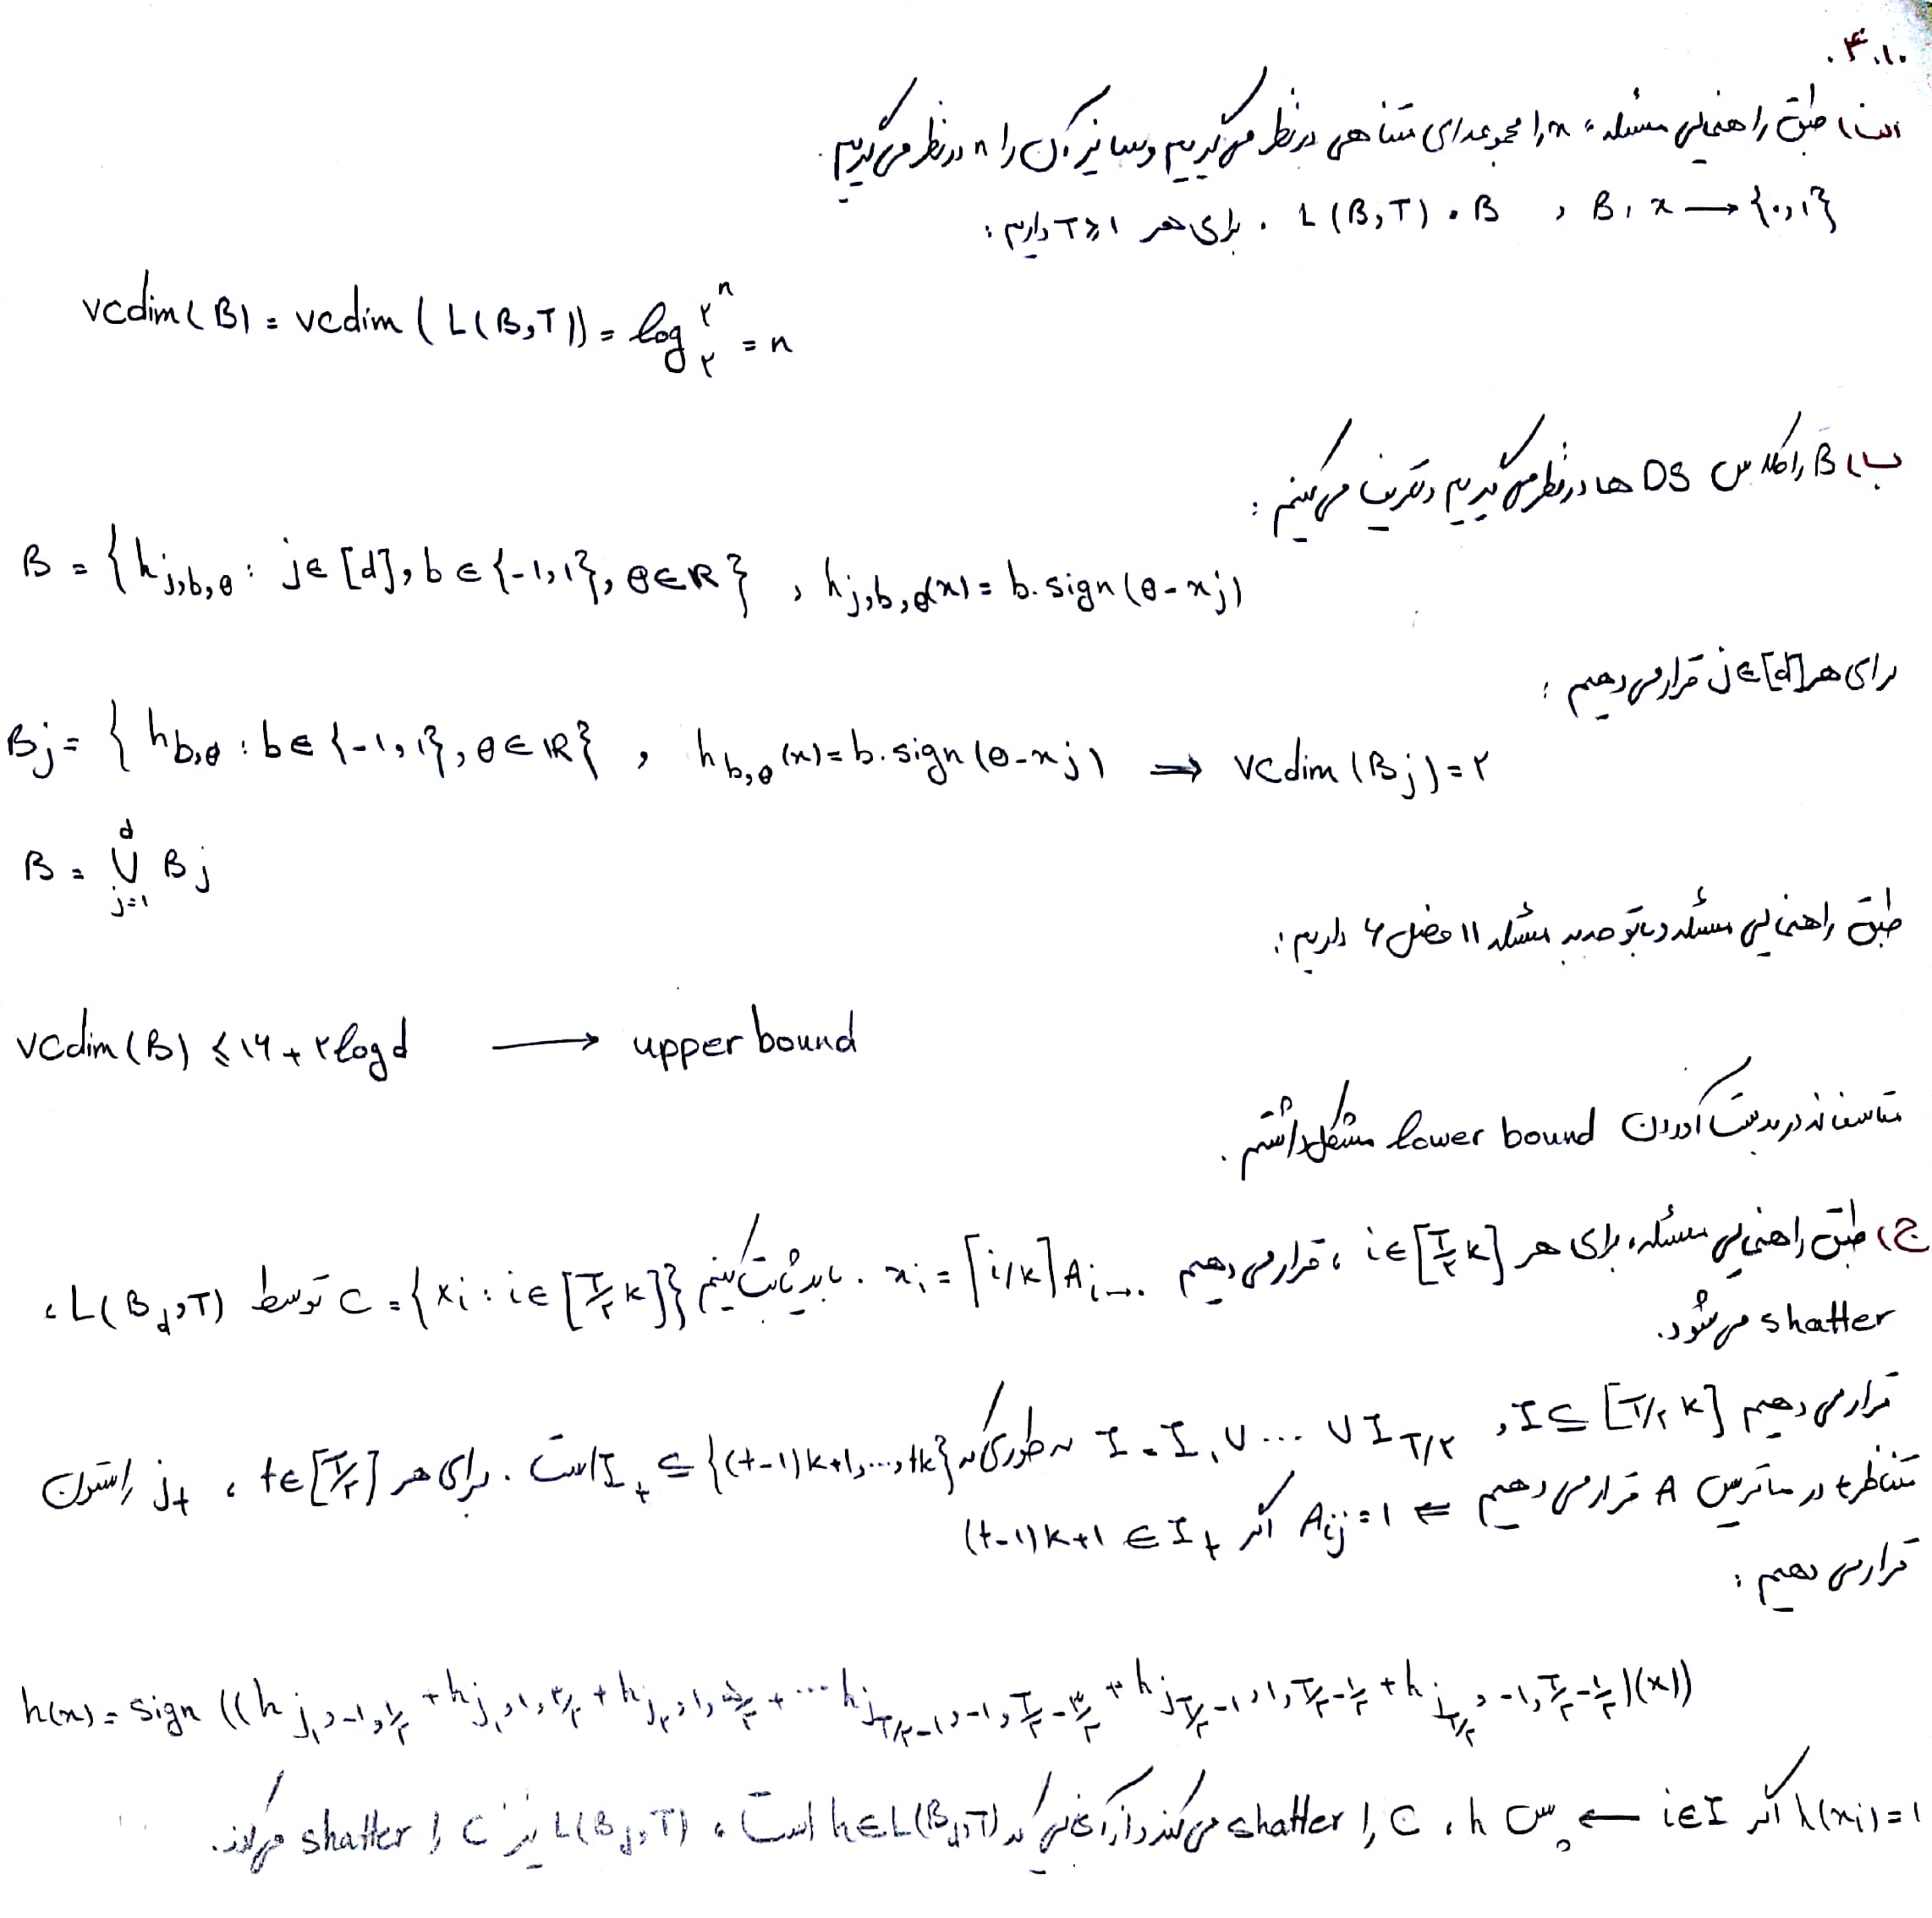 ۴.۱۰.
الف) طبق راهنمایی مسئله، x را مجموعه‌ای متناهی در نظر می‌گیریم و سایز آن را n در نظر می‌گیریم.
B: x → {۰,۱} , L(B,T) = B . برای هر T ≥ ۱ داریم:
vcdim(B) = vcdim(L(B,T)) = log₂ ۲ⁿ = n
ب) B را کلاس DS ها در نظر می‌گیریم و تعریف می‌کنیم:
B = {h_{j,b,θ} : j ∈ [d], b ∈ {-۱,۱}, θ ∈ ℝ} , h_{j,b,θ}(x) = b. sign(θ - x_j)
برای هر j ∈ [d] قرار می‌دهیم:
B_j = {h_{b,θ} : b ∈ {-۱,۱}, θ ∈ ℝ} , h_{b,θ}(x) = b. sign(θ - x_j) ⇒ vcdim(B_j) = ۲
B = ⋃_{j=۱}^{d} B_j
طبق راهنمایی مسئله و با توجه به مسئله ۱۱ فصل ۶ داریم:
vcdim(B) ≤ ۱۶ + ۲ log d → upper bound
متاسفانه در بدست آوردن lower bound مشکل داشتم.
ج) طبق راهنمایی مسئله، برای هر i ∈ [T/۲ k] ، قرار می‌دهیم x_i = ⌈i/k⌉ A_{i→} . باید ثابت کنیم C = {x_i : i ∈ [T/۲ k]} توسط L(B_d,T) ،
shatter می‌شود.
قرار می‌دهیم I ⊆ [T/۲ k] , I = I₁ ∪ ... ∪ I_{T/۲} به طوری که I_t ⊆ {(t-۱)k+۱,...,tk} است. برای هر t ∈ [T/۲] ، j_t را ستون
متناظر t در ماتریس A قرار می‌دهیم ⇐ A_{ij} = ۱ اگر (t-۱)k+۱ ∈ I_t
قرار می‌دهیم:
h(x) = sign((h_{j₁,-۱,۱/۲} + h_{j₁,۱,۳/۲} + h_{j₂,۱,۵/۲} + ... h_{j_{T/۲-۱},-۱,T/۲-۳/۲} + h_{j_{T/۲-۱},۱,T/۲-۱/۲} + h_{j_{T/۲},-۱,T/۲-۱/۲})(x))
h(x_i) = ۱ اگر i ∈ I ← پس h ، C را shatter می‌کند و از آنجایی که h ∈ L(B_d,T) است ، L(B_d,T) نیز C را shatter می‌کند.